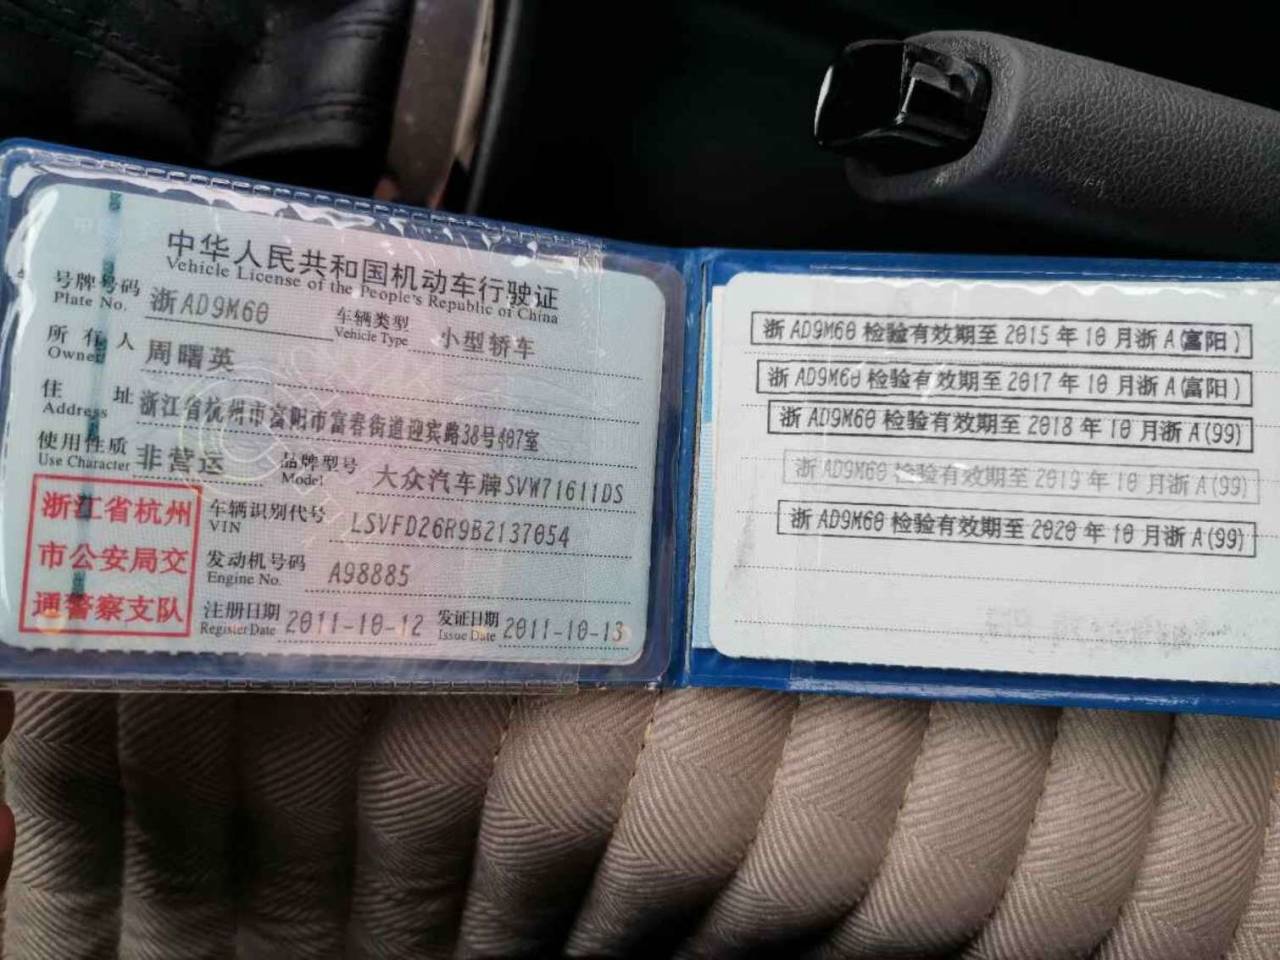 中华人民共和国机动车行驶证
Vehicle License of the People's Republic of China
号牌号码 浙AD9M60 车辆类型 小型轿车
Plate No. Vehicle Type
所有人 周曙英
Owner
住址 浙江省杭州市富阳市富春街道迎宾路38号407室
Address
使用性质 非营运 品牌型号 大众汽车牌SVW71611DS
Use Character Model
浙江省杭州
市公安局交
通警察支队
车辆识别代号 LSVFD26R9B2137054
VIN
发动机号码 A98885
Engine No.
注册日期 2011-10-12 发证日期 2011-10-13
Register Date Issue Date
浙AD9M60检验有效期至2015年10月浙A(富阳)
浙AD9M60检验有效期至2017年10月浙A(富阳)
浙AD9M60检验有效期至2018年10月浙A(99)
浙AD9M60检验有效期至2019年10月浙A(99)
浙AD9M60检验有效期至2020年10月浙A(99)